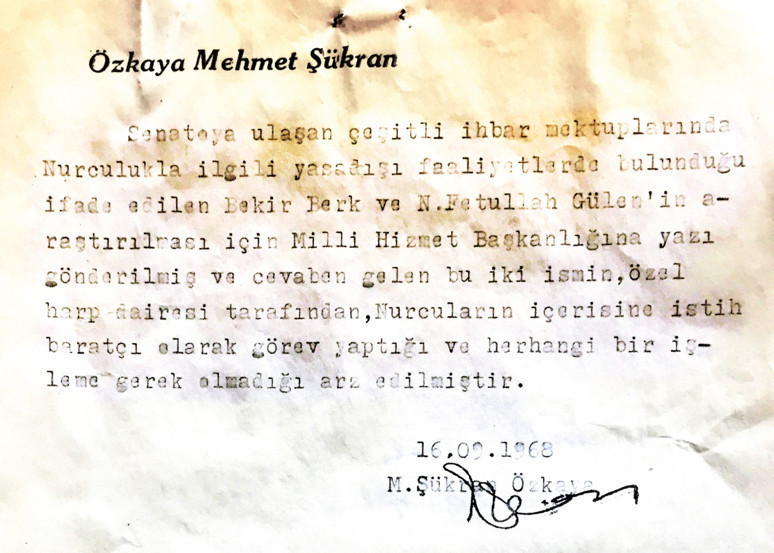 Özkaya Mehmet Şükran
Senatoya ulaşan çeşitli ihbar mektuplarında
Nurculukla ilgili yasadışı faaliyetlerde bulunduğu
ifade edilen Bekir Berk ve N.Fetullah Gülen'in a-
raştırılması için Milli Hizmet Başkanlığına yazı
gönderilmiş ve cevaben gelen bu iki ismin,özel
harp dairesi tarafından,Nurcuların içerisine istih
baratçı olarak görev yaptığı ve herhangi bir iş-
leme gerek olmadığı arz edilmiştir.
16.09.1968
M.Şükran Özkaya